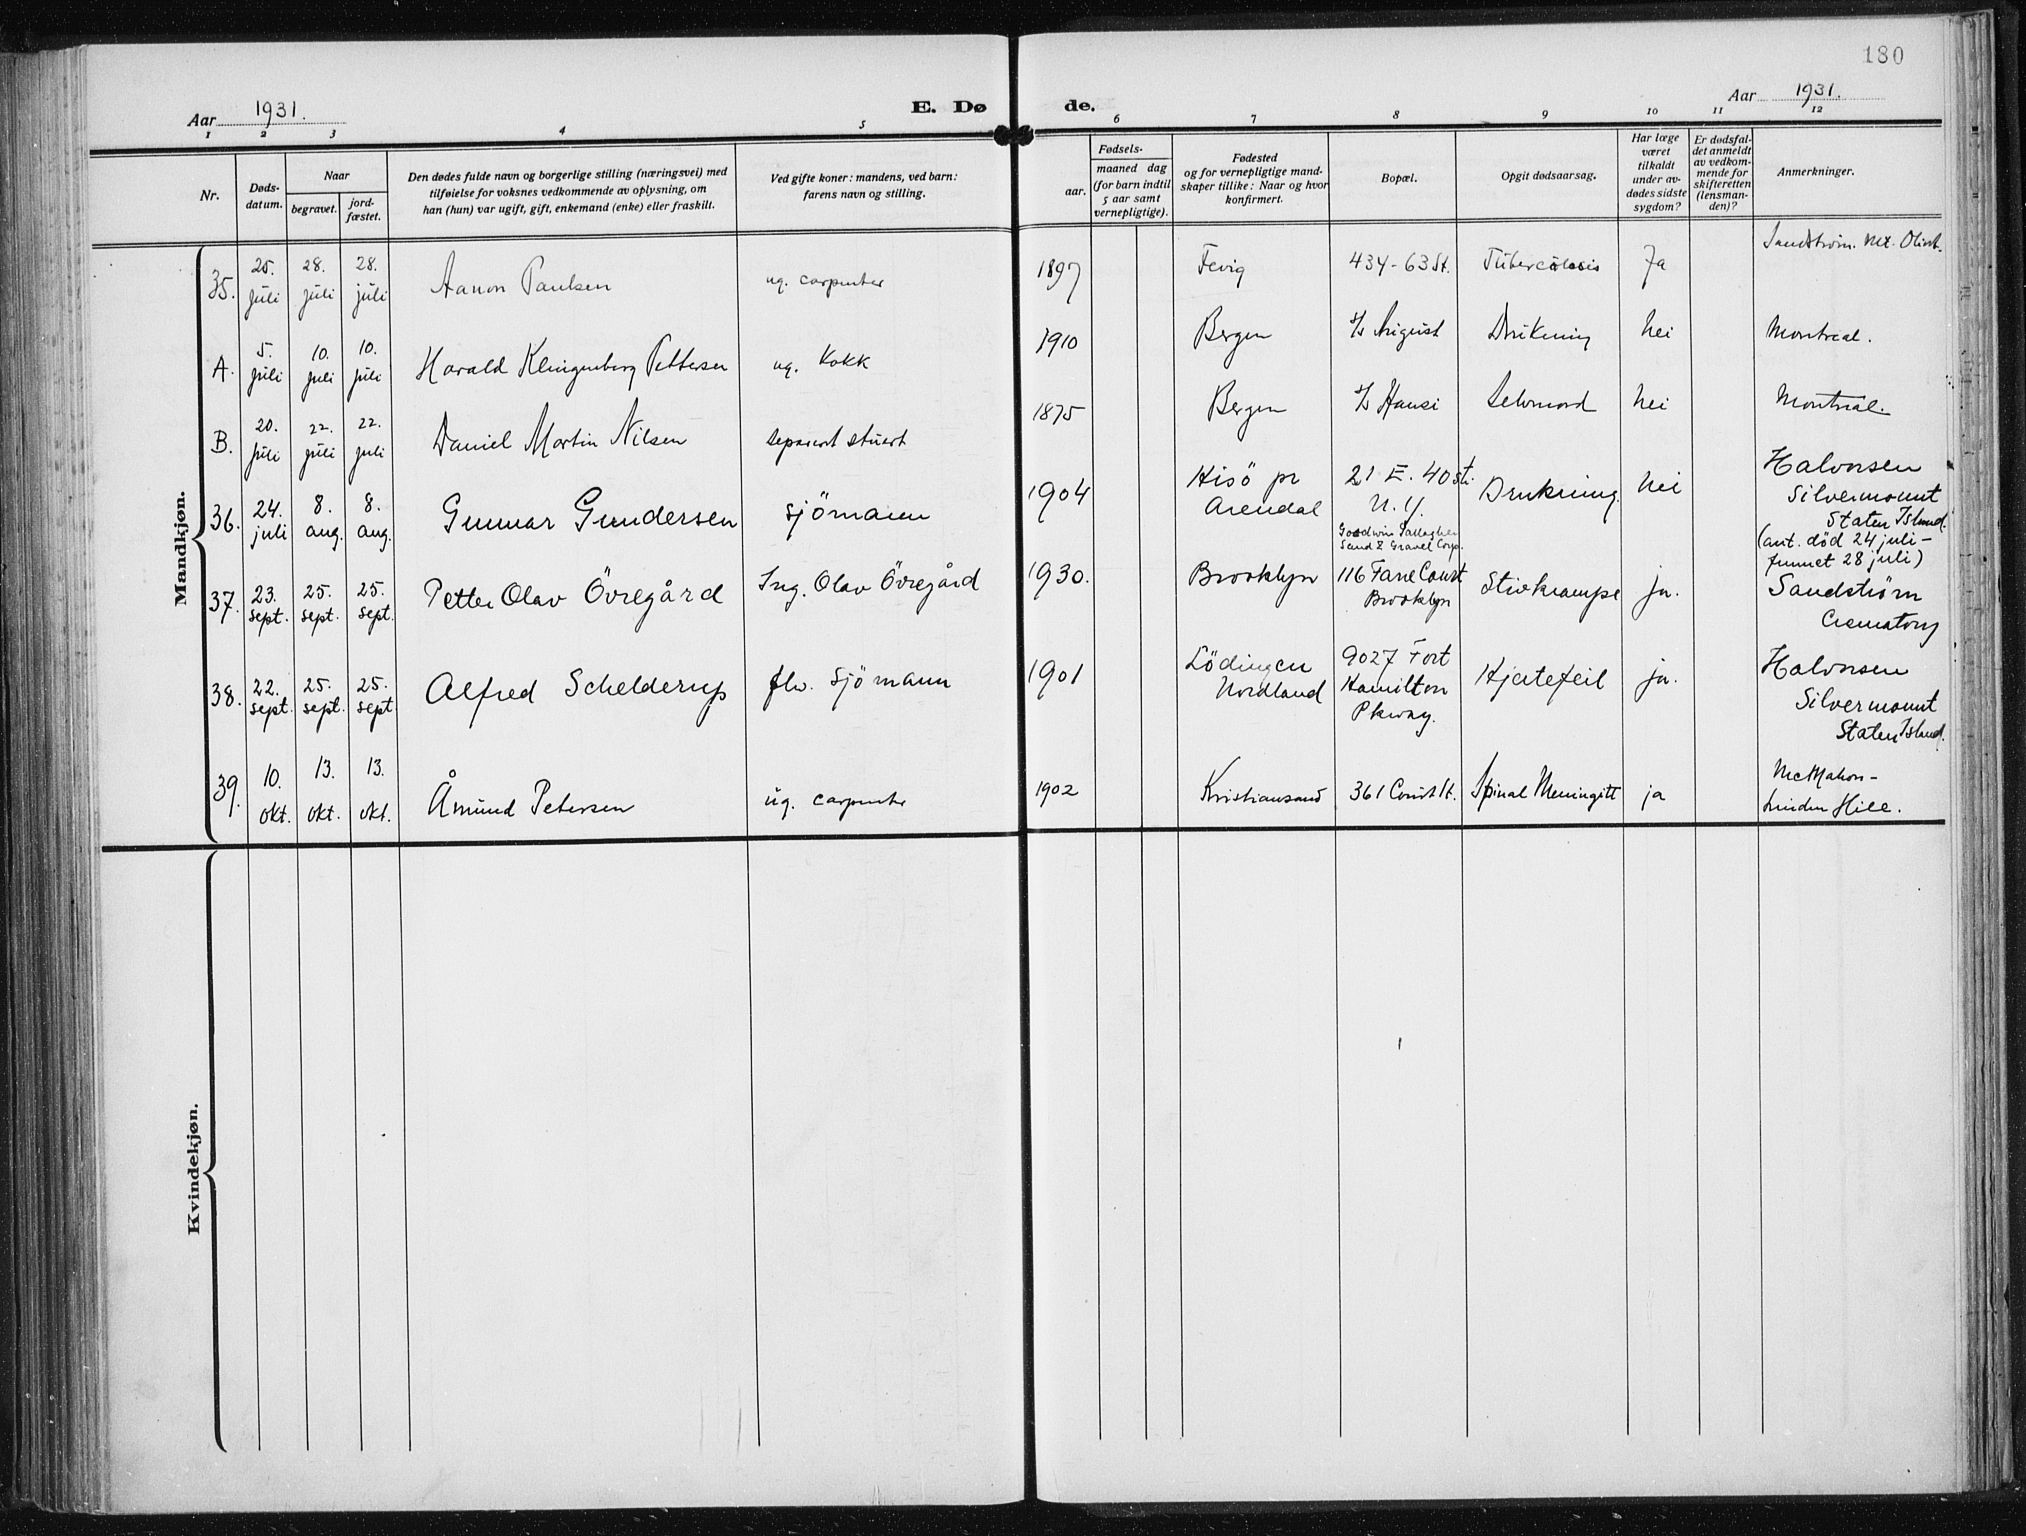 180
Aar 1931.
E. Dø
de.
Aar 1931.
1 2 3 4 5 6 7 8 9 10 11 12
Nr.
Døds-
datum.
Naar
begravet.
jord-
fæstet.
Den dødes fulde navn og borgerlige stilling (næringsvei) med
tilføielse for voksnes vedkommende av oplysning, om
han (hun) var ugift, gift, enkemand (enke) eller fraskilt.
Ved gifte koner: mandens, ved barn:
farens navn og stilling.
Fødsels-
aar.
maaned dag
(for barn indtil
5 aar samt
vernepligtige).
Fødested
og for vernepligtige mand-
skaper tillike: Naar og hvor
konfirmert.
Bopæl.
Opgit dødsaarsag.
Har læge
været
tilkaldt
under av-
dødes sidste
sygdom?
Er dødsfal-
det anmeldt
av vedkom-
mende for
skifteretten
(lensman-
den)?
Anmerkninger.
Mandkjøn.
35.
25.
juli
28.
juli
28.
juli
Aanon Paulsen
ug. carpenter
1897
Fevig
434-63 St.
Tuberculosis
Ja
Sandstrøm. Mt. Olivet.
A.
5.
juli
10.
juli
10.
juli
Harald Klingenberg Pettersen
ug. Kokk
1910
Bergen
s/s August
Drukning
Nei
Montreal.
B.
20.
juli
22.
juli
22.
juli
Daniel Martin Nilsen
separert stuert
1875
Bergen
s/s Hansi
Selvmord
Nei
Montreal.
36.
24.
juli
8.
aug.
8.
aug.
Gunnar Gundersen
sjömann
1904
Hisö pr
Arendal
21 E. 40 St.
N.Y.
Goodwin Gallagher
Sand & Gravel Corp.
Drukning.
Nei
Halvorsen
Silvermount
Staten Island.
(ant. død 24 juli-
funnet 28 juli)
37.
23.
sept.
25.
sept.
25.
sept.
Petter Olav Övregård
Ing. Olav Övregård
1930.
Brooklyn
116 Court
Brooklyn
Stivkrampe
ja.
Sandstrøm
Crematory
38.
22.
sept.
25.
sept.
25.
sept
Alfred Schelderup
fhv. sjömann
1901
Lödingen
Nordland
9027 Fort
Hamilton
Pkway.
Hjertefeil
ja.
Halvorsen
Silvermount
Staten Island.
39.
10.
okt.
13.
okt.
13.
okt.
Åmund Petersen
ug. carpenter
1902
Kristiansand
361 Court St.
Spinal Meningitt
ja
McMahon-
Linden Hill.
Kvindekjøn.